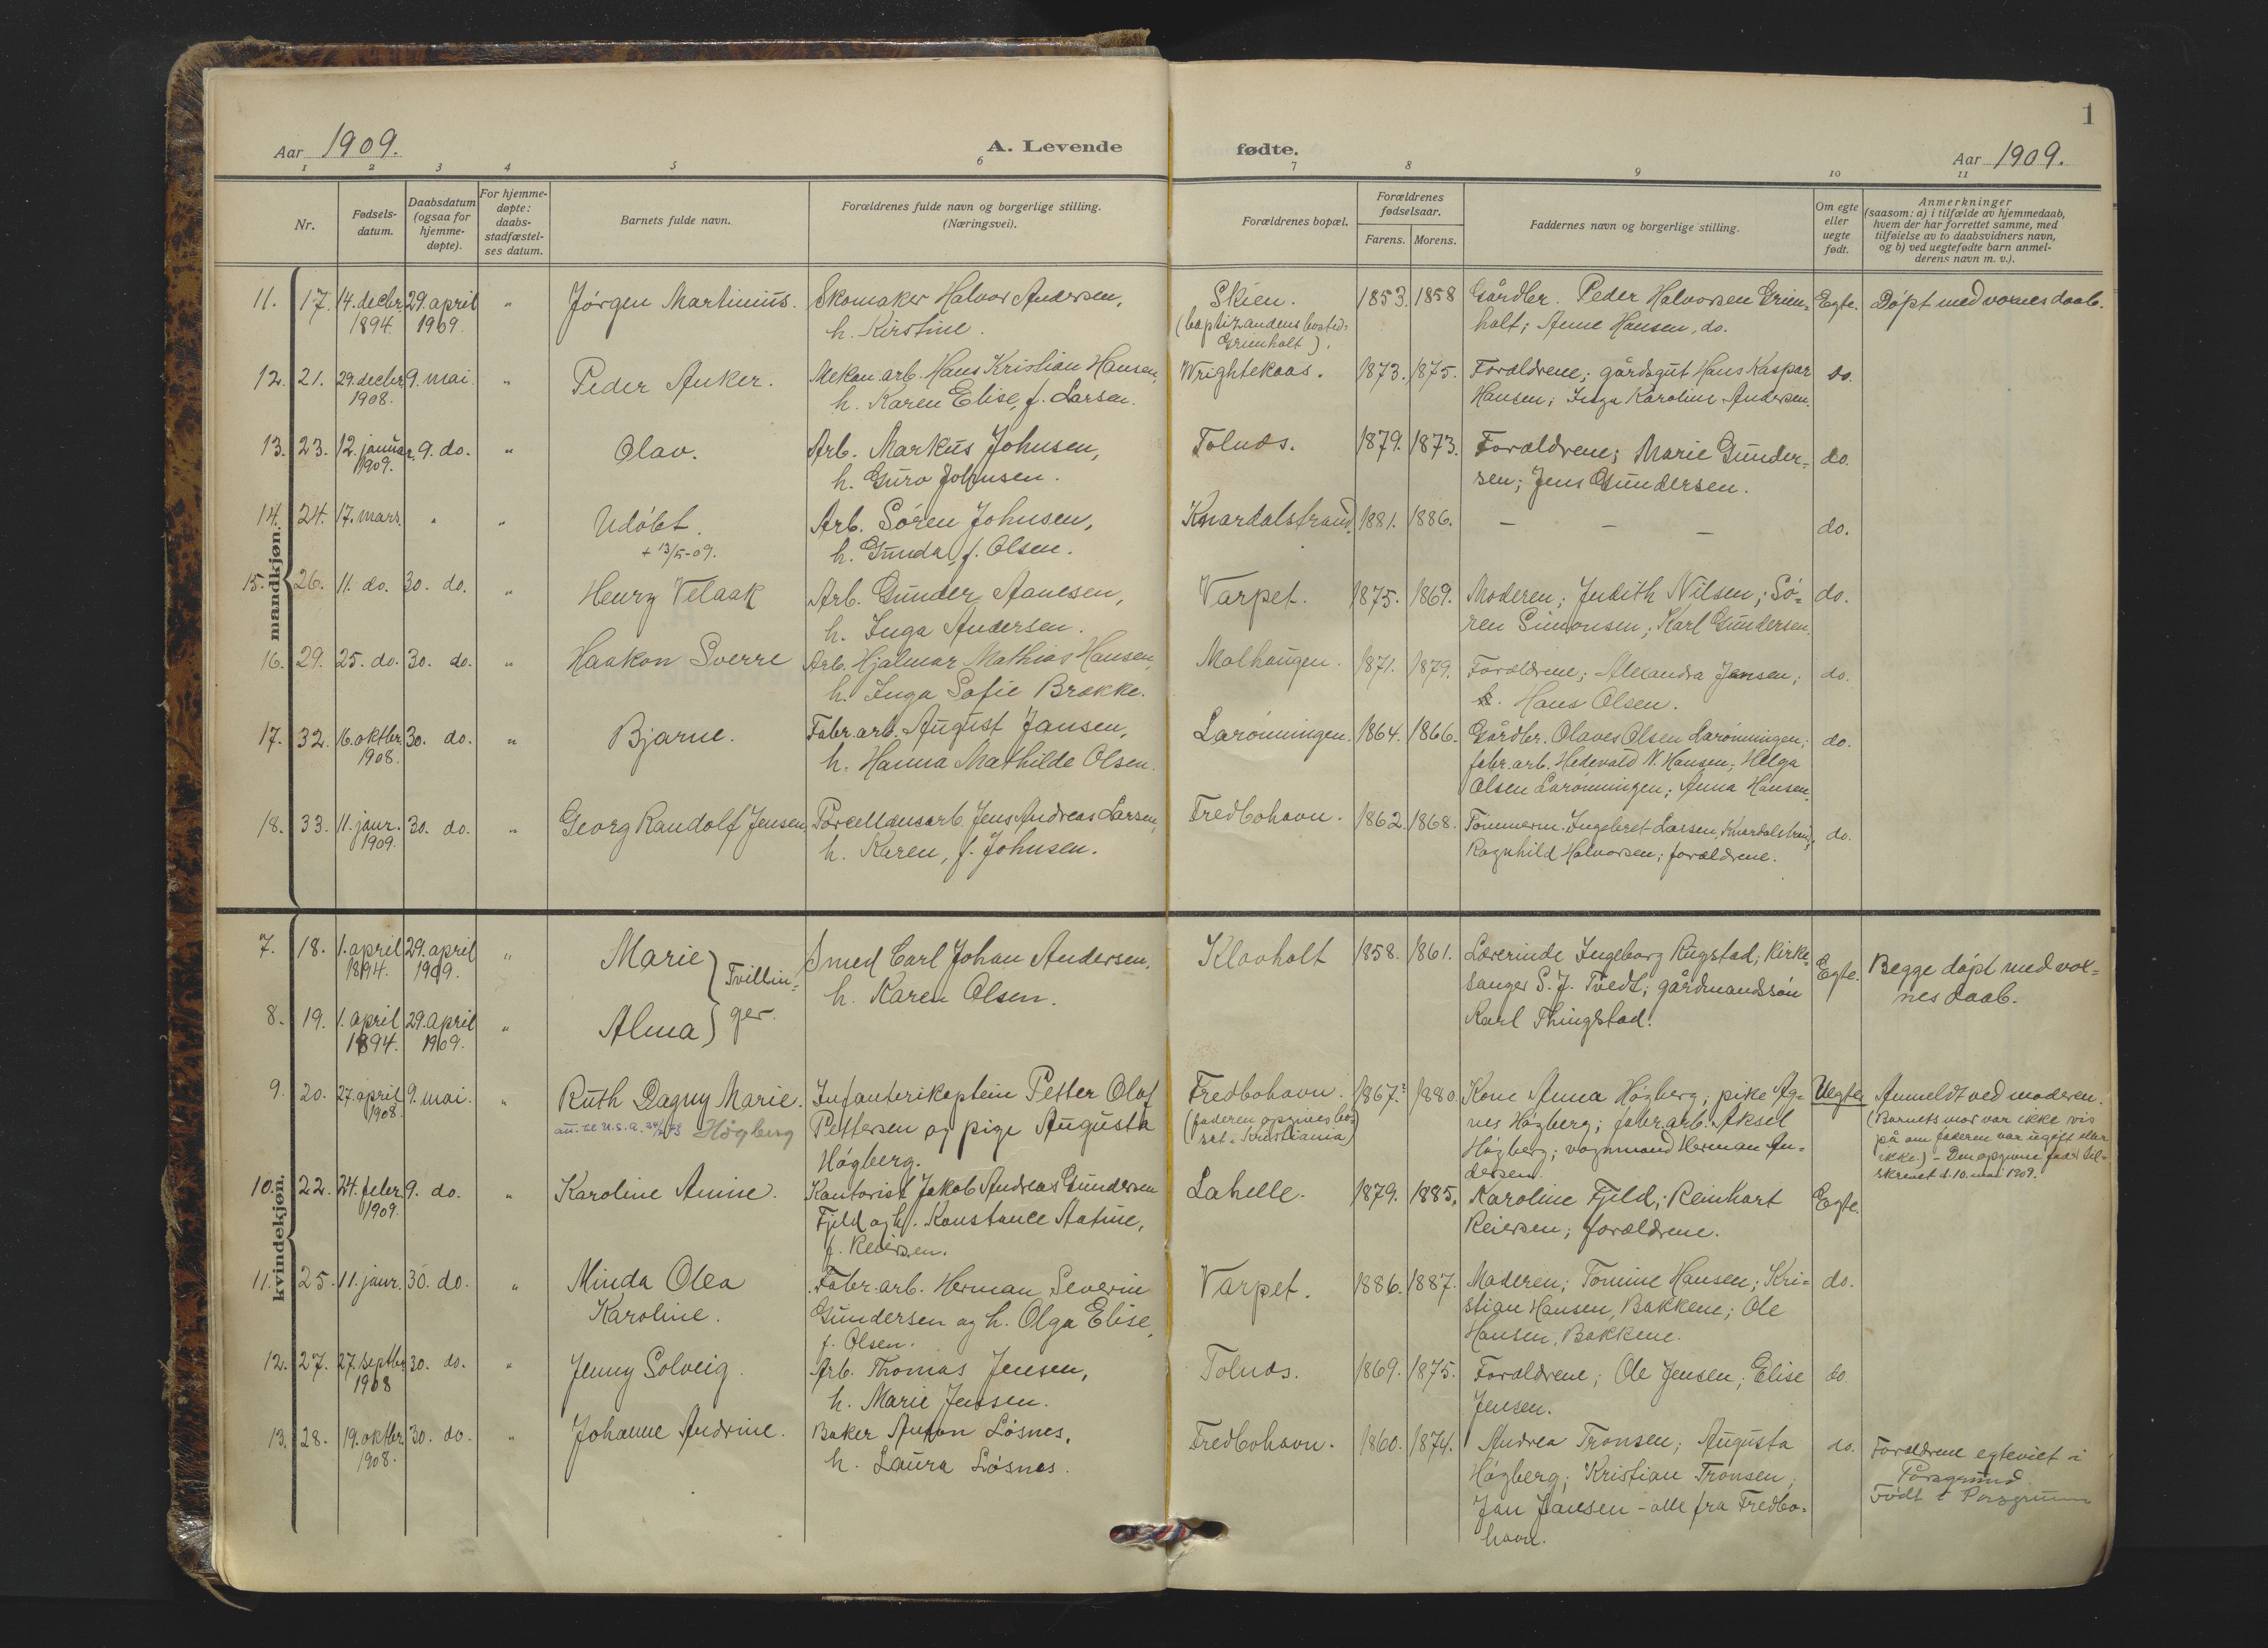 Aar 1909.
A. Levende
fødte.
Aar 1909.
1
1 2 3 4 5 6
7 8 9 10 11
Nr.
Fødsels-
datum.
Daabsdatum
(ogsaa for
hjemme-
døpte).
For hjemme-
døpte:
daabs-
stadfæstel-
ses datum.
Barnets fulde navn.
Forældrenes fulde navn og borgerlige stilling.
(Næringsvei).
Forældrenes bopæl.
Forældrenes
fødselsaar.
Farens. Morens.
Faddernes navn og borgerlige stilling.
Om egte
eller
uegte
født.
Anmerkninger
(saasom: a) i tilfælde av hjemmedaab,
hvem der har forrettet samme, med
tilføielse av to daabsvidners navn,
og b) ved uegtefødte barn anmel-
derens navn m. v.).
mandkjøn.
11. 17. 14. decbr. 29. april " Jörgen Martinius. Skomaker Halvor Andersen, Skien. 1853. 1858 Gårdbr. Peder Halvorsen Grim= Egte. Döpt med voxnes daab.
1894. 1909. h. Kirstine. (baptizandens bosted: holt; Anne Hansen, do.
Grimholt).
12. 21. 29. decbr. 9. mai. " Peder Anker. Mekan. arb. Hans Kristian Hansen, Wrightekaas. 1873. 1875. Forældrene; gårdsgut Hans Kaspar do.
1908. h. Karen Elise, f. Larsen. Hansen; Inga Karoline Andersen.
13. 23. 12. januar. 9. do. " Olav. Arb. Markus Johnsen, Tolnæs. 1879. 1873. Forældrene; Marie Gunder= do.
1909. h. Guro Johnsen. sen; Jens Gundersen.
14. 24. 17. mars. " " Udöbt. Arb. Sören Johnsen, Knardalstrand. 1881. 1886. – – – do.
+ 13/5-09. h. Gunda, f. Olsen.
15. 26. 11. do. 30. do. " Henry Velaak Arb. Gunder Aanesen, Varpet. 1875. 1869. Moderen; Judith Nilsen; Sö= do.
h. Inga Andersen. ren Simonsen; Karl Gundersen.
16. 29. 25. do. 30. do. " Haakon Sverre Arb. Hjalmar Mathias Hansen, Malhaugen. 1871. 1879. Forældrene; Alexandra Jensen; do.
h. Inga Sofie Brekke. Hans Olsen.
17. 32. 16. oktbr. 30. do. " Bjarne. Fabr. arb. August Jansen, Larönningen. 1864. 1866. Gårdbr. Olaves Olsen Larönningen; do.
1908. h. Hanna Mathilde Olsen. fabr. arb. Hedevald N. Hansen; Helga
Olsen Larönningen; Anna Hansen.
18. 33. 11. janr. 30. do. " Georg Randolf Jensen Porcellænsarb. Jens Andreas Larsen, Fredbohavn. 1862. 1868. Tömmerm. Ingebret Larsen, Knardalstrand; do.
1909. h. Karen, f. Johnsen. Ragnhild Halvorsen; forældrene.
kvindekjøn.
7. 18. 1. april 29. april " Marie Tvillin= Smed Carl Johan Andersen, Klovholt 1858. 1861. Lærerinde Ingeborg Rugstad; kirke= Egte. Begge döpt med vox=
1894. 1909. h. Karen Olsen. sanger S. J. Tvedt; gårdmandssön nes daab.
8. 19. 1. april 29. april " Alma ger. Karl Thingstad.
1894. 1909.
9. 20. 27. april 9. mai. " Ruth Dagny Marie. Infanterikaptein Petter Olaf Fredbohavn. 1867.? 1880. Kone Anna Högberg; pike Ag= Uegte Anmeldt ved moderen.
1908. Högberg Pettersen og pige Augusta (faderen opgives bo= nes Högberg; fabr. arb. Aksel (Barnets mor var ikke vis
Högberg. sat i Kristiania) Högberg; vognmand Herman An= på om faderen var ugift eller
dersen. ikke.) – Den opgivne fader til=
skrevet d. 10. mai 1909.
10. 22. 24. febr. 9. do. " Karoline Amine. Kontorist Jakob Andreas Gundersen Lahelle. 1879. 1885. Karoline Fjeld; Reinhart Egte.
1909. Fjeld og h. Konstance Aatine, Reiersen; forældrene.
f. Reiersen.
11. 25. 11. janr. 30. do. " Minda Olea Fabr. arb. Herman Severin Varpet. 1886. 1887. Moderen; Tomine Hansen; Kri= do.
Karoline. Gundersen og h. Olga Elise, stian Hansen, Bakkene; Ole
f. Olsen. Hansen, Bakkene.
12. 27. 27. septbr. 30. do. " Jenny Solveig. Arb. Thomas Jensen, Tolnæs. 1869. 1875. Forældrene; Ole Jensen; Elise do.
1908 h. Marie Jensen. Jensen.
13. 28. 19. oktbr. 30. do. " Johanne Andrine. Baker Anton Lösnes, Fredbohavn. 1860. 1874. Andrea Tronsen; Augusta do. Forældrene egteviet i
1908. h. Laura Lösnes. Högberg; Kristian Tronsen; Porsgrund.
Jan Jansen – alle fra Fredbo= Födt i Porsgrunn
havn.